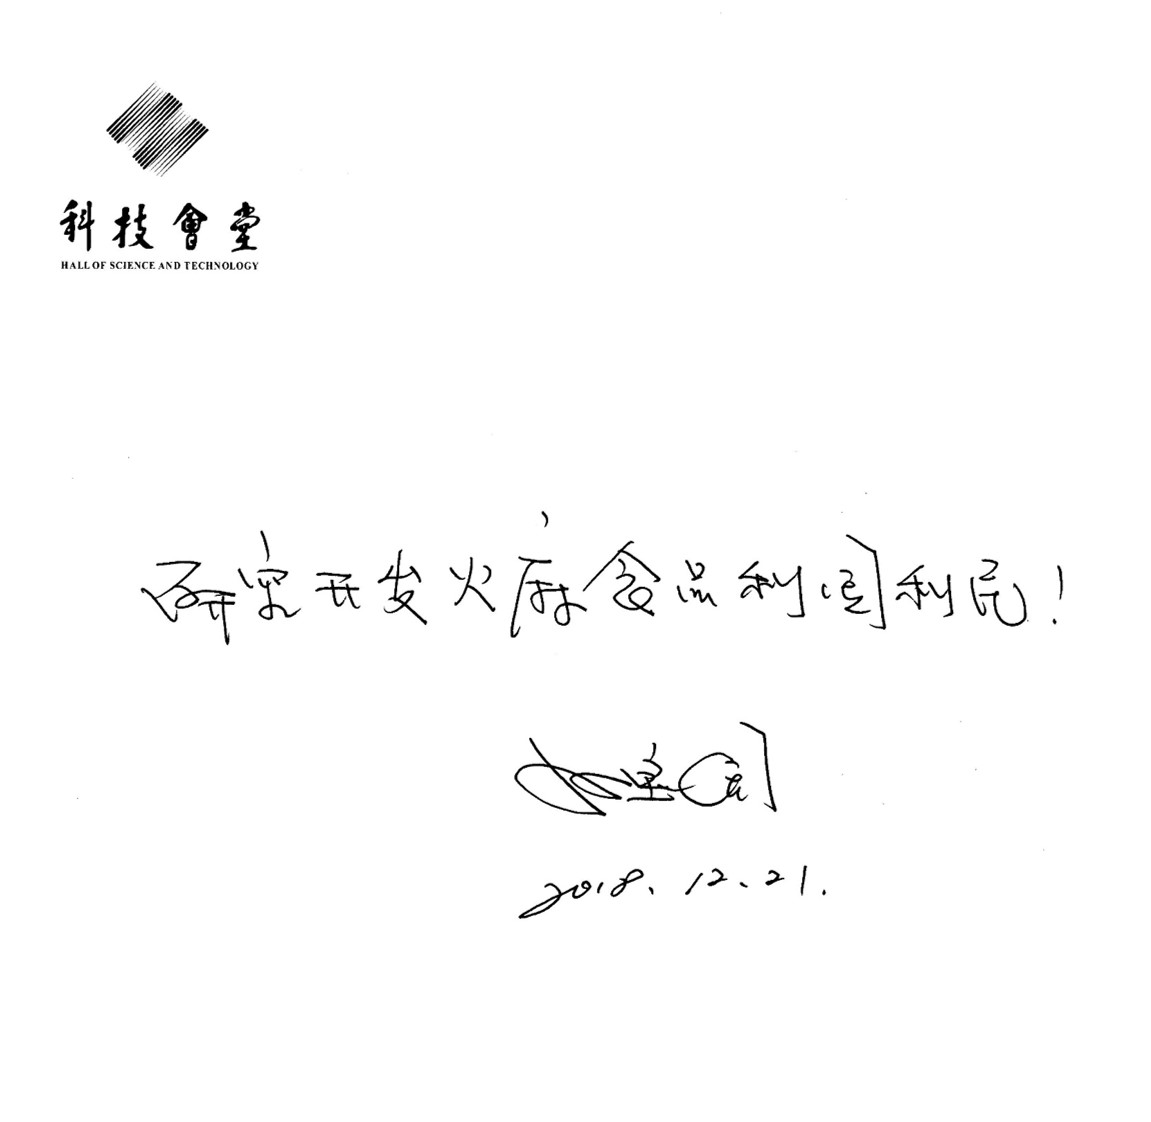 科技會堂
HALL OF SCIENCE AND TECHNOLOGY
研究开发火麻食品利国利民！
2018.12.21.